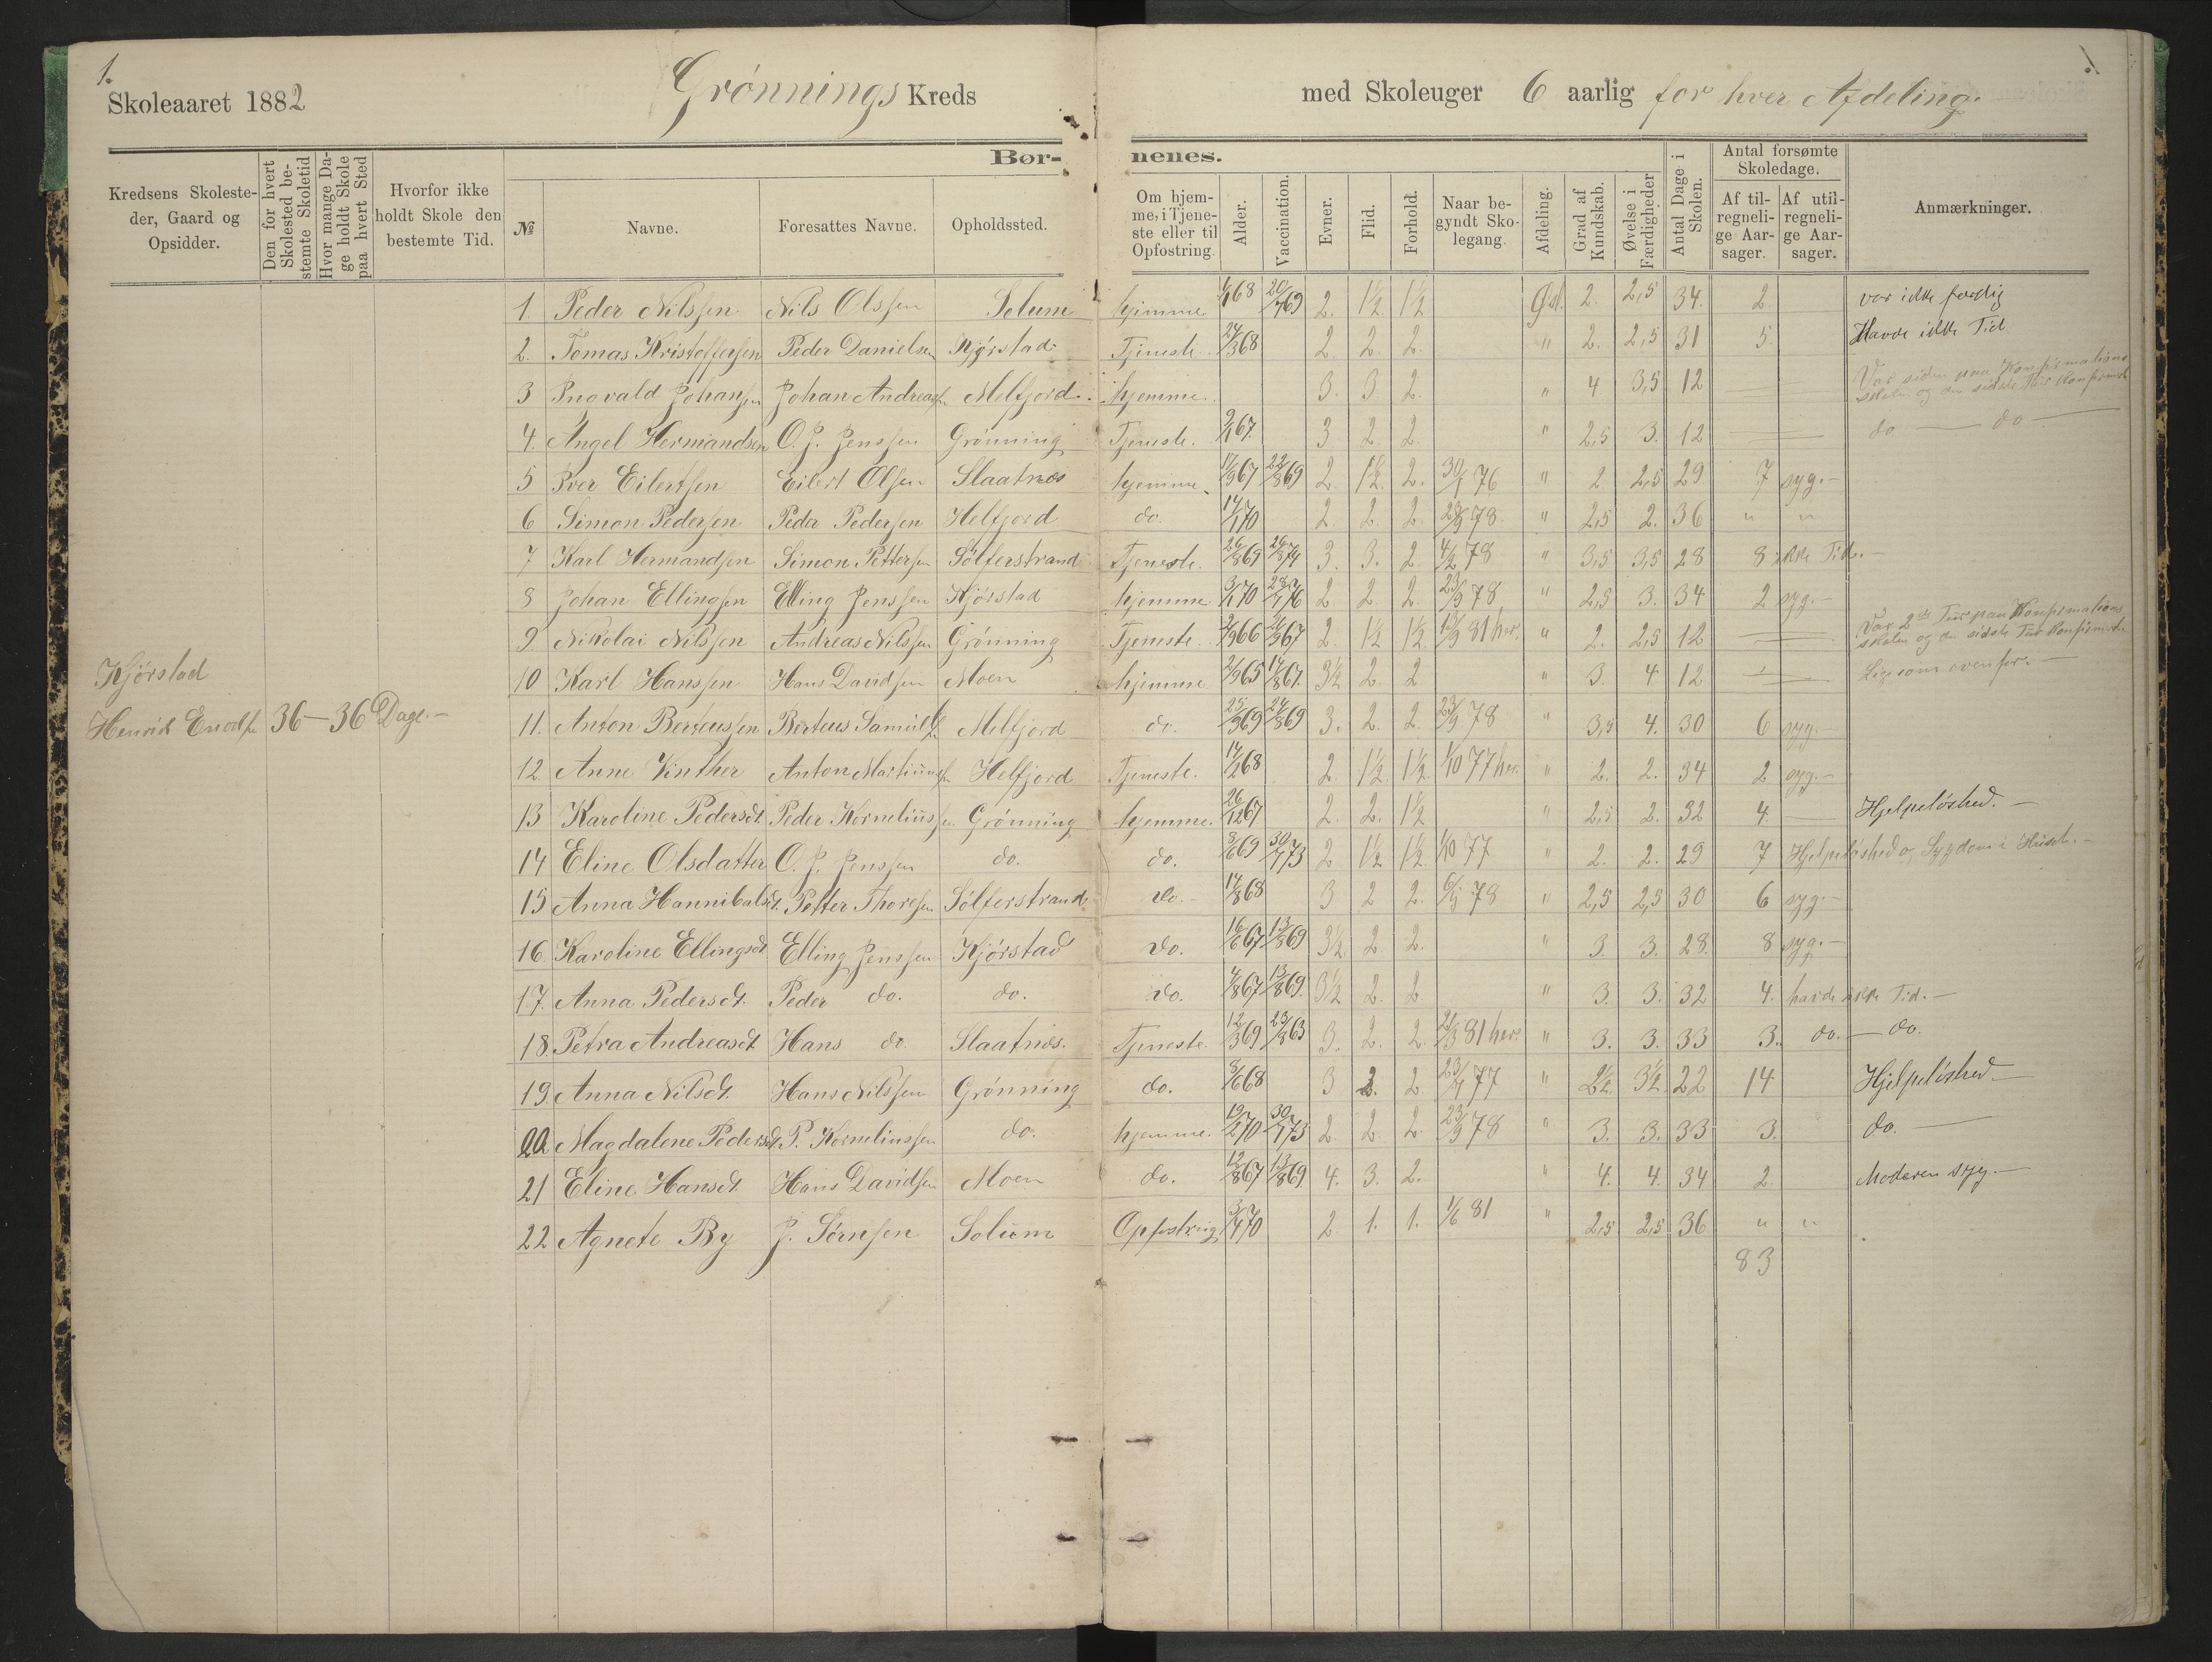 1.
Skoleaaret 1882 Grønnings Kreds
med Skoleuger 6 aarlig for hver Afdeling.
Børnenes.
Kredsens Skolesteder, Gaard og Opsidder.
Den for hvert Skolested bestemte Skoletid
Hvor mange Dage holdt Skole paa hvert Sted
Hvorfor ikke holdt Skole den bestemte Tid.
№
Navne.
Foresattes Navne.
Opholdssted.
Om hjemme, i Tjeneste eller til Opfostring.
Alder.
Vaccination.
Evner.
Flid.
Forhold.
Naar begyndt Skolegang.
Afdeling.
Grad af Kundskab.
Øvelse i Færdigheder
Antal Dage i Skolen.
Antal forsømte Skoledage.
Af tilregnelige Aarsager.
Af utilregnelige Aarsager.
Anmærkninger.
1. Peder Nilssen Nils Olssen Solum hjemme 20/769 2. 1½ 1½ Øst. 2. 2,5 34. 2 var ikke færdig
2. Tomas Kristoffersen Peder Danielsen Kjørstad Tjeneste 24/368 2. 2. 2. " 2. 2,5 31 5. Havde ikke Tid
3 Ingvald Johansen Johan Andreass. Melfjord. hjemme. 3. 3. 2. " 4 3,5 12 — Var siden paa Konfirmations skolen og den sidste Tür Konfirmert
4. Angel Hermandsen O. J. Jenssen Grønning Tjeneste. 3 2 2. " 2,5 3. 12 — do — do —
5 Iver Eilertsen Eilert Olsen Slaatnæs hjemme. 17/967 22/869 2. 1½ 2. 30/1 76 " 2 2,5 29 7 syg.—
6 Simon Pedersen Peder Pedersen Helfjord do. 14/170 2. 2. 2. 78. " 2,5 2. 36 " "
7 Karl Hermandsen Simon Pettersen Sölferstrand Tjeneste. 26/869 26/874 3. 3. 2. 4/2 78 " 3,5 3,5 28 8 ikke Tid.—
8 Johan Ellingsen Elling Jenssen Kjørstad hjemme. 3/170 28/776 2. 2 2. 23/9 78 " 2,5 3. 34 2 syg.—
9. Nikolai Nilssen Andreas Nilssen Grønning Tjeneste. 2. 1½ 1½ 81 her. " 2. 2,5 12 — Var 2den Tür paa Konfirmations skolen og den sidste Tür Konfirmerte
10 Karl Hanssen Hans Davidsen Moen hjemme 2/965 17/867. 3½ 2. 2 " 3. 4 12 — Ligesom ovenfor.—
11. Anton Berteussen Berteus Samüls. Melfjord do. 25/369 24/869 3. 2. 2. 23/9 78 " 3,5 4. 30 6 syg.—
12. Anne Vinther Anton Martinüs. Helfjord Tjeneste. 14/268 2. 1½ 1½ 1/10 77 her. " 2. 2. 34 2 syg.—
13 Karoline Pedersdt. Peder Kornelüssen Grønning hjemme. 26/1267 2. 2. 1½ " 2,5 2. 32 4. — Hjelpeløshed.—
14 Eline Olsdatter O. J. Jenssen do. do. 8/669 30/773 2 1½ 1½ 1/10 77 " 2. 2. 29 7 Hjelpeløshed og Sygdom i Hüset.—
15 Anna Hannibalsdt. Petter Thoresen Sölferstrand do.— 14/868 3 2 2. 78 " 2,5 2,5 30 6 syg.—
16 Karoline Ellingsdt Elling Jenssen Kjørstad do. 16/667 13/869 3½ 2 2. " 3. 3. 28. 8 syg.—
17. Anna Pedersdt. Peder do. do. do. 4/867 13/869. 3½ 2. 2 " 3. 3. 32 4. havde ikke Tid.—
18. Petra Andreasdt. Hans do. Slaatnæs. Tjeneste. 12/369 23/863 3. 2. 2. 81 her. " 3. 3. 33 3. do.— do.
19. Anna Nilsdt. Hans Nilssen Grønning do. 8/668 3 2. 2 77 " 2½ 3½ 22 14 Hjelpeløshed—
20 Magdalene Pedersdt. P. Kornelinssen do. hjemme. 19/270 30/773 2. 2. 2. 23/9 78 " 3. 3. 33 3. do. —
21 Eline Hansdt. Hans Davidsen Moen do. 12/867 13/869. 4. 3. 2. " 4. 4. 34 2. Moderen syg.—
22 Agnete By J. Sörnsen Solüm Opfostring 3/470 2 1. 1. 1/6 81 " 2,5 2,5 36 " "
83
Kjørstad
36 — 36 Dage.—